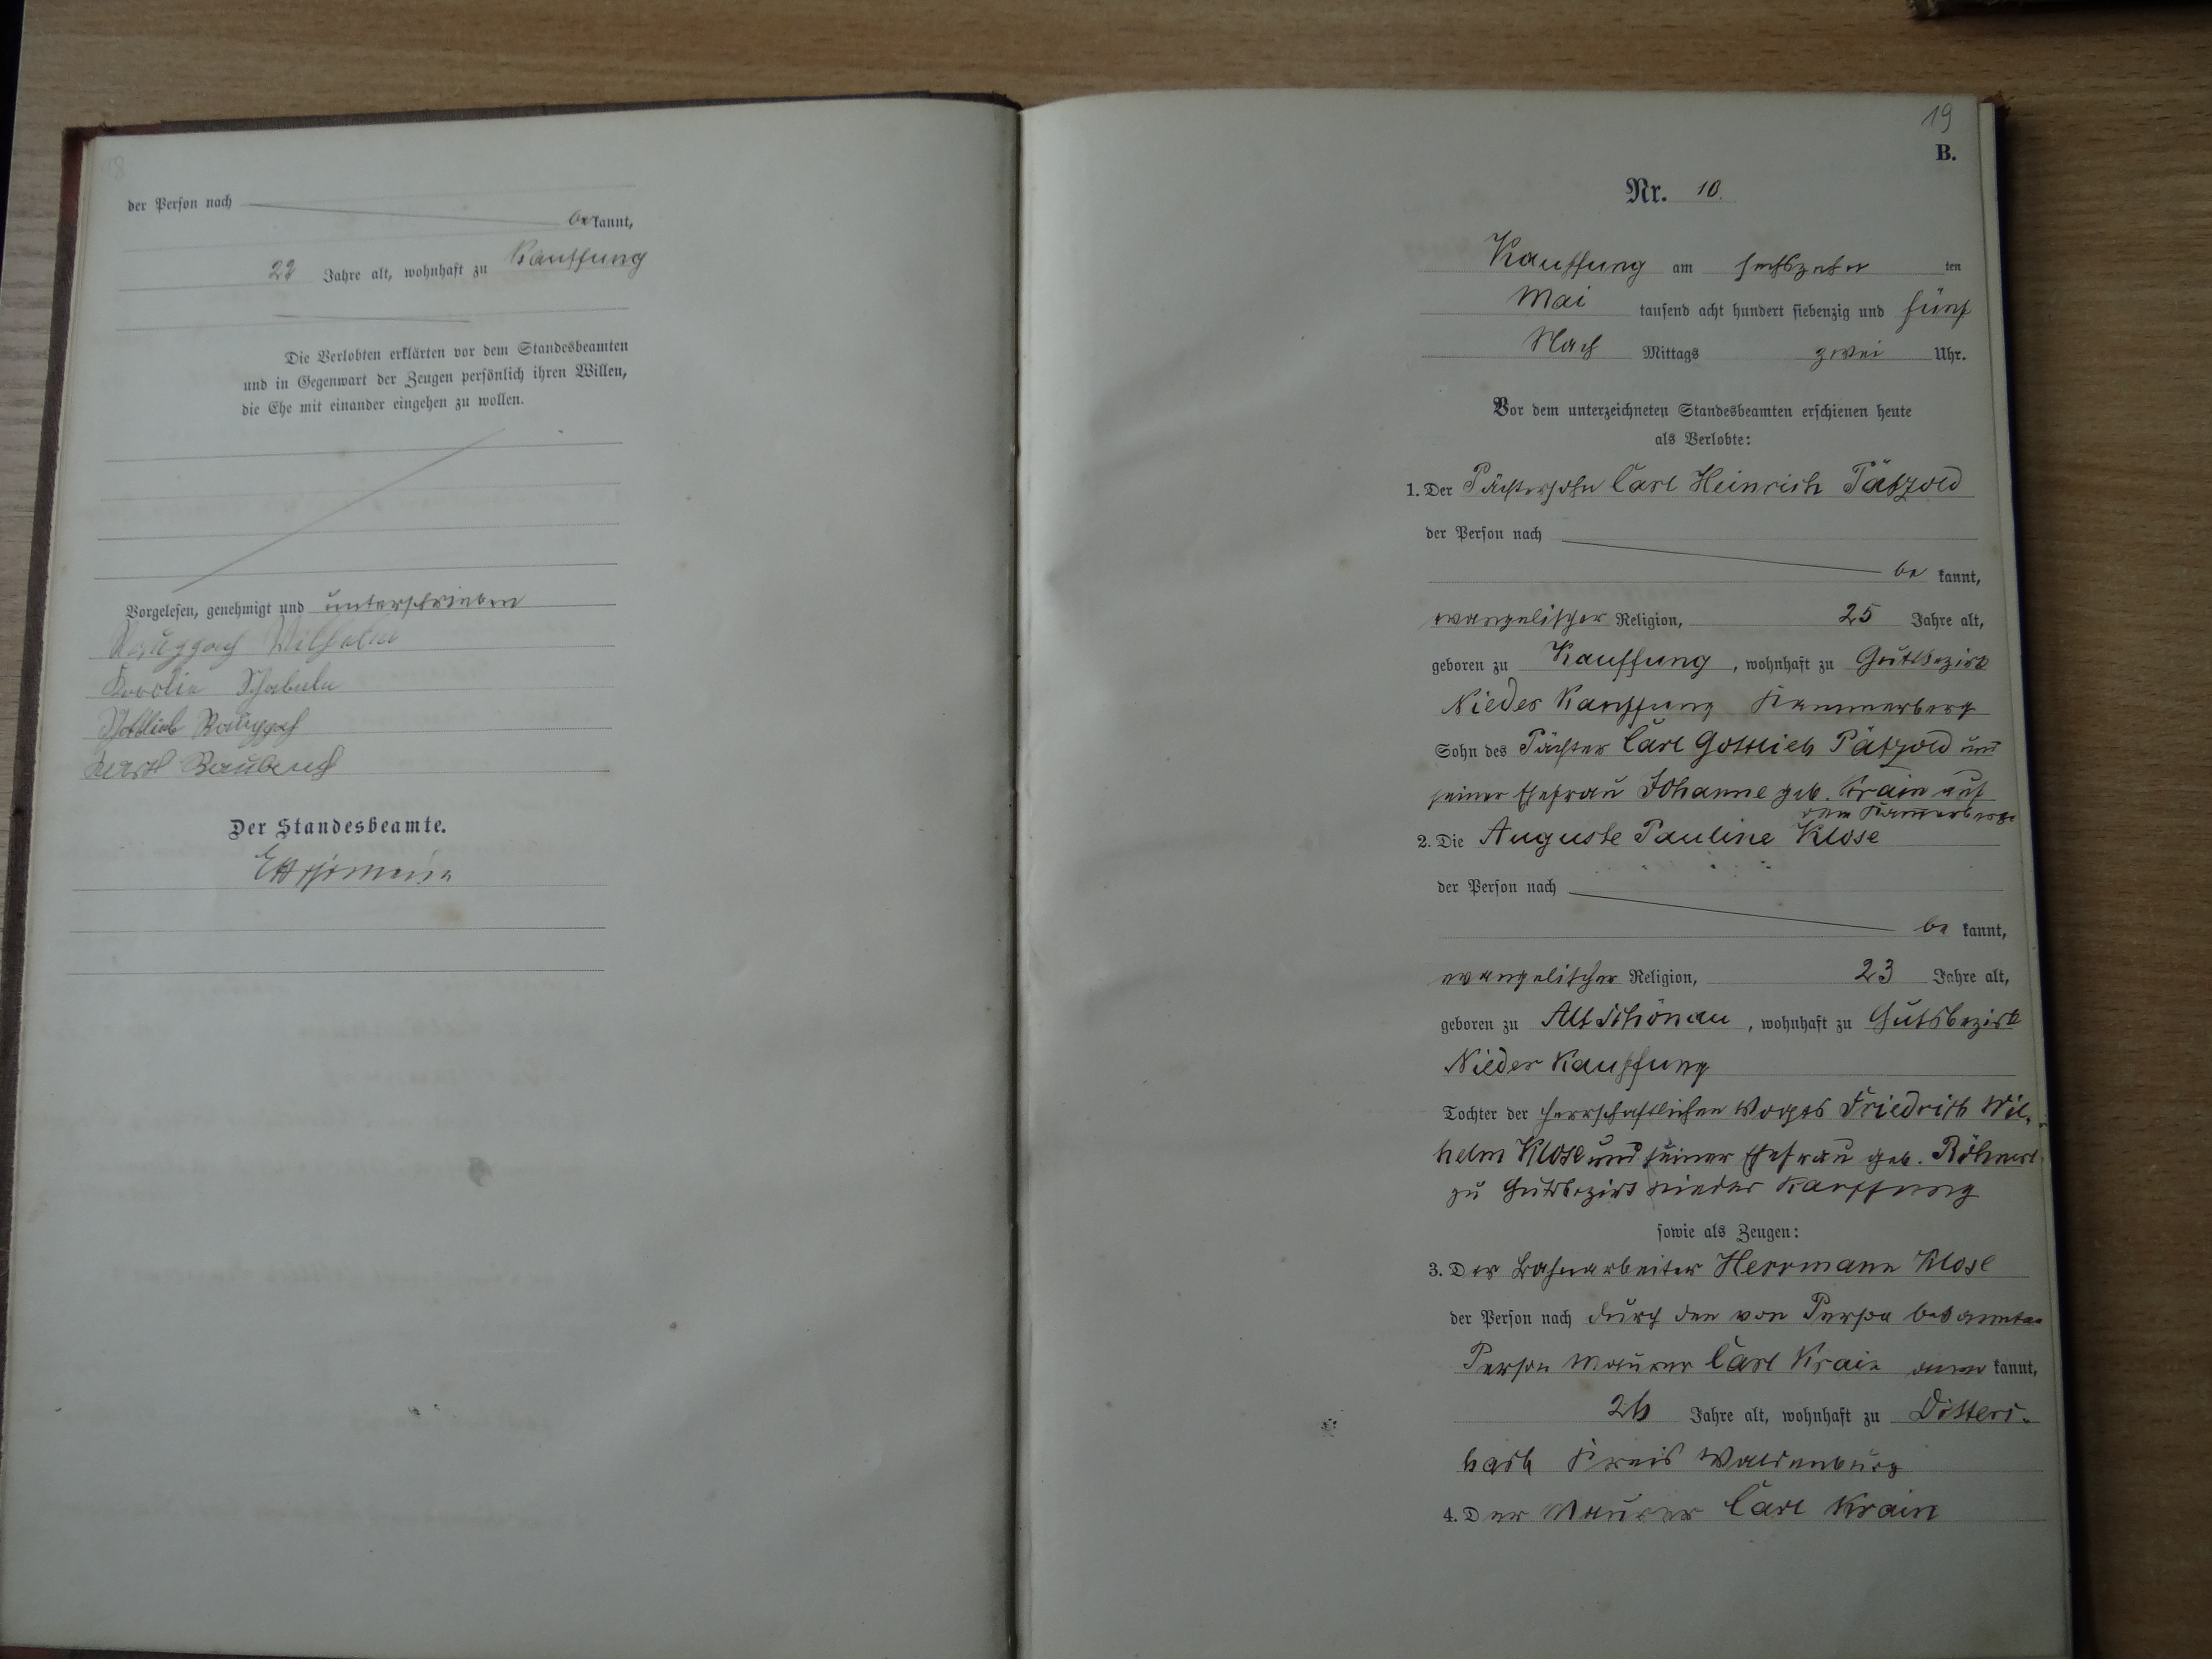 18
der Person nach
be kannt,
22 Jahre alt, wohnhaft zu Kauffung
Die Verlobten erklärten vor dem Standesbeamten
und in Gegenwart der Zeugen persönlich ihren Willen,
die Ehe mit einander eingehen zu wollen.
Vorgelesen, genehmigt und unterschrieben
Wilhelm
Gottlieb
Der Standesbeamte.
19
B.
Nr. 10.
Kauffung am sechszehn ten
Mai tausend acht hundert siebenzig und fünf
Nach Mittags zwei Uhr.
Vor dem unterzeichneten Standesbeamten erschienen heute
als Verlobte:
1. Der Pächtersohn Carl Heinrich Pätzold
der Person nach
be kannt,
evangelischer Religion, 25 Jahre alt,
geboren zu Kauffung, wohnhaft zu Gutsbezirk
Nieder Kauffung Kammerberg
Sohn des Pächter Carl Gottlieb Pätzold und
seiner Ehefrau Johanne geb. Krain auf
dem Kammerberge
2. Die Auguste Pauline Klose
der Person nach
be kannt,
evangelischer Religion, 23 Jahre alt,
geboren zu Alt Schönau, wohnhaft zu Gutsbezirk
Nieder Kauffung
Tochter der herrschaftlichen Vogts Friedrich Wil-
helm Klose und seiner Ehefrau geb. Röhnert
zu Gutsbezirk Nieder Kauffung
sowie als Zeugen:
3. Der Bahnarbeiter Herrmann Klose
der Person nach durch den von Person bekannten
Person Maurer Carl Krain kannt,
26 Jahre alt, wohnhaft zu Ditters-
bach Kreis Waldenburg
4. Der Maurer Carl Krain